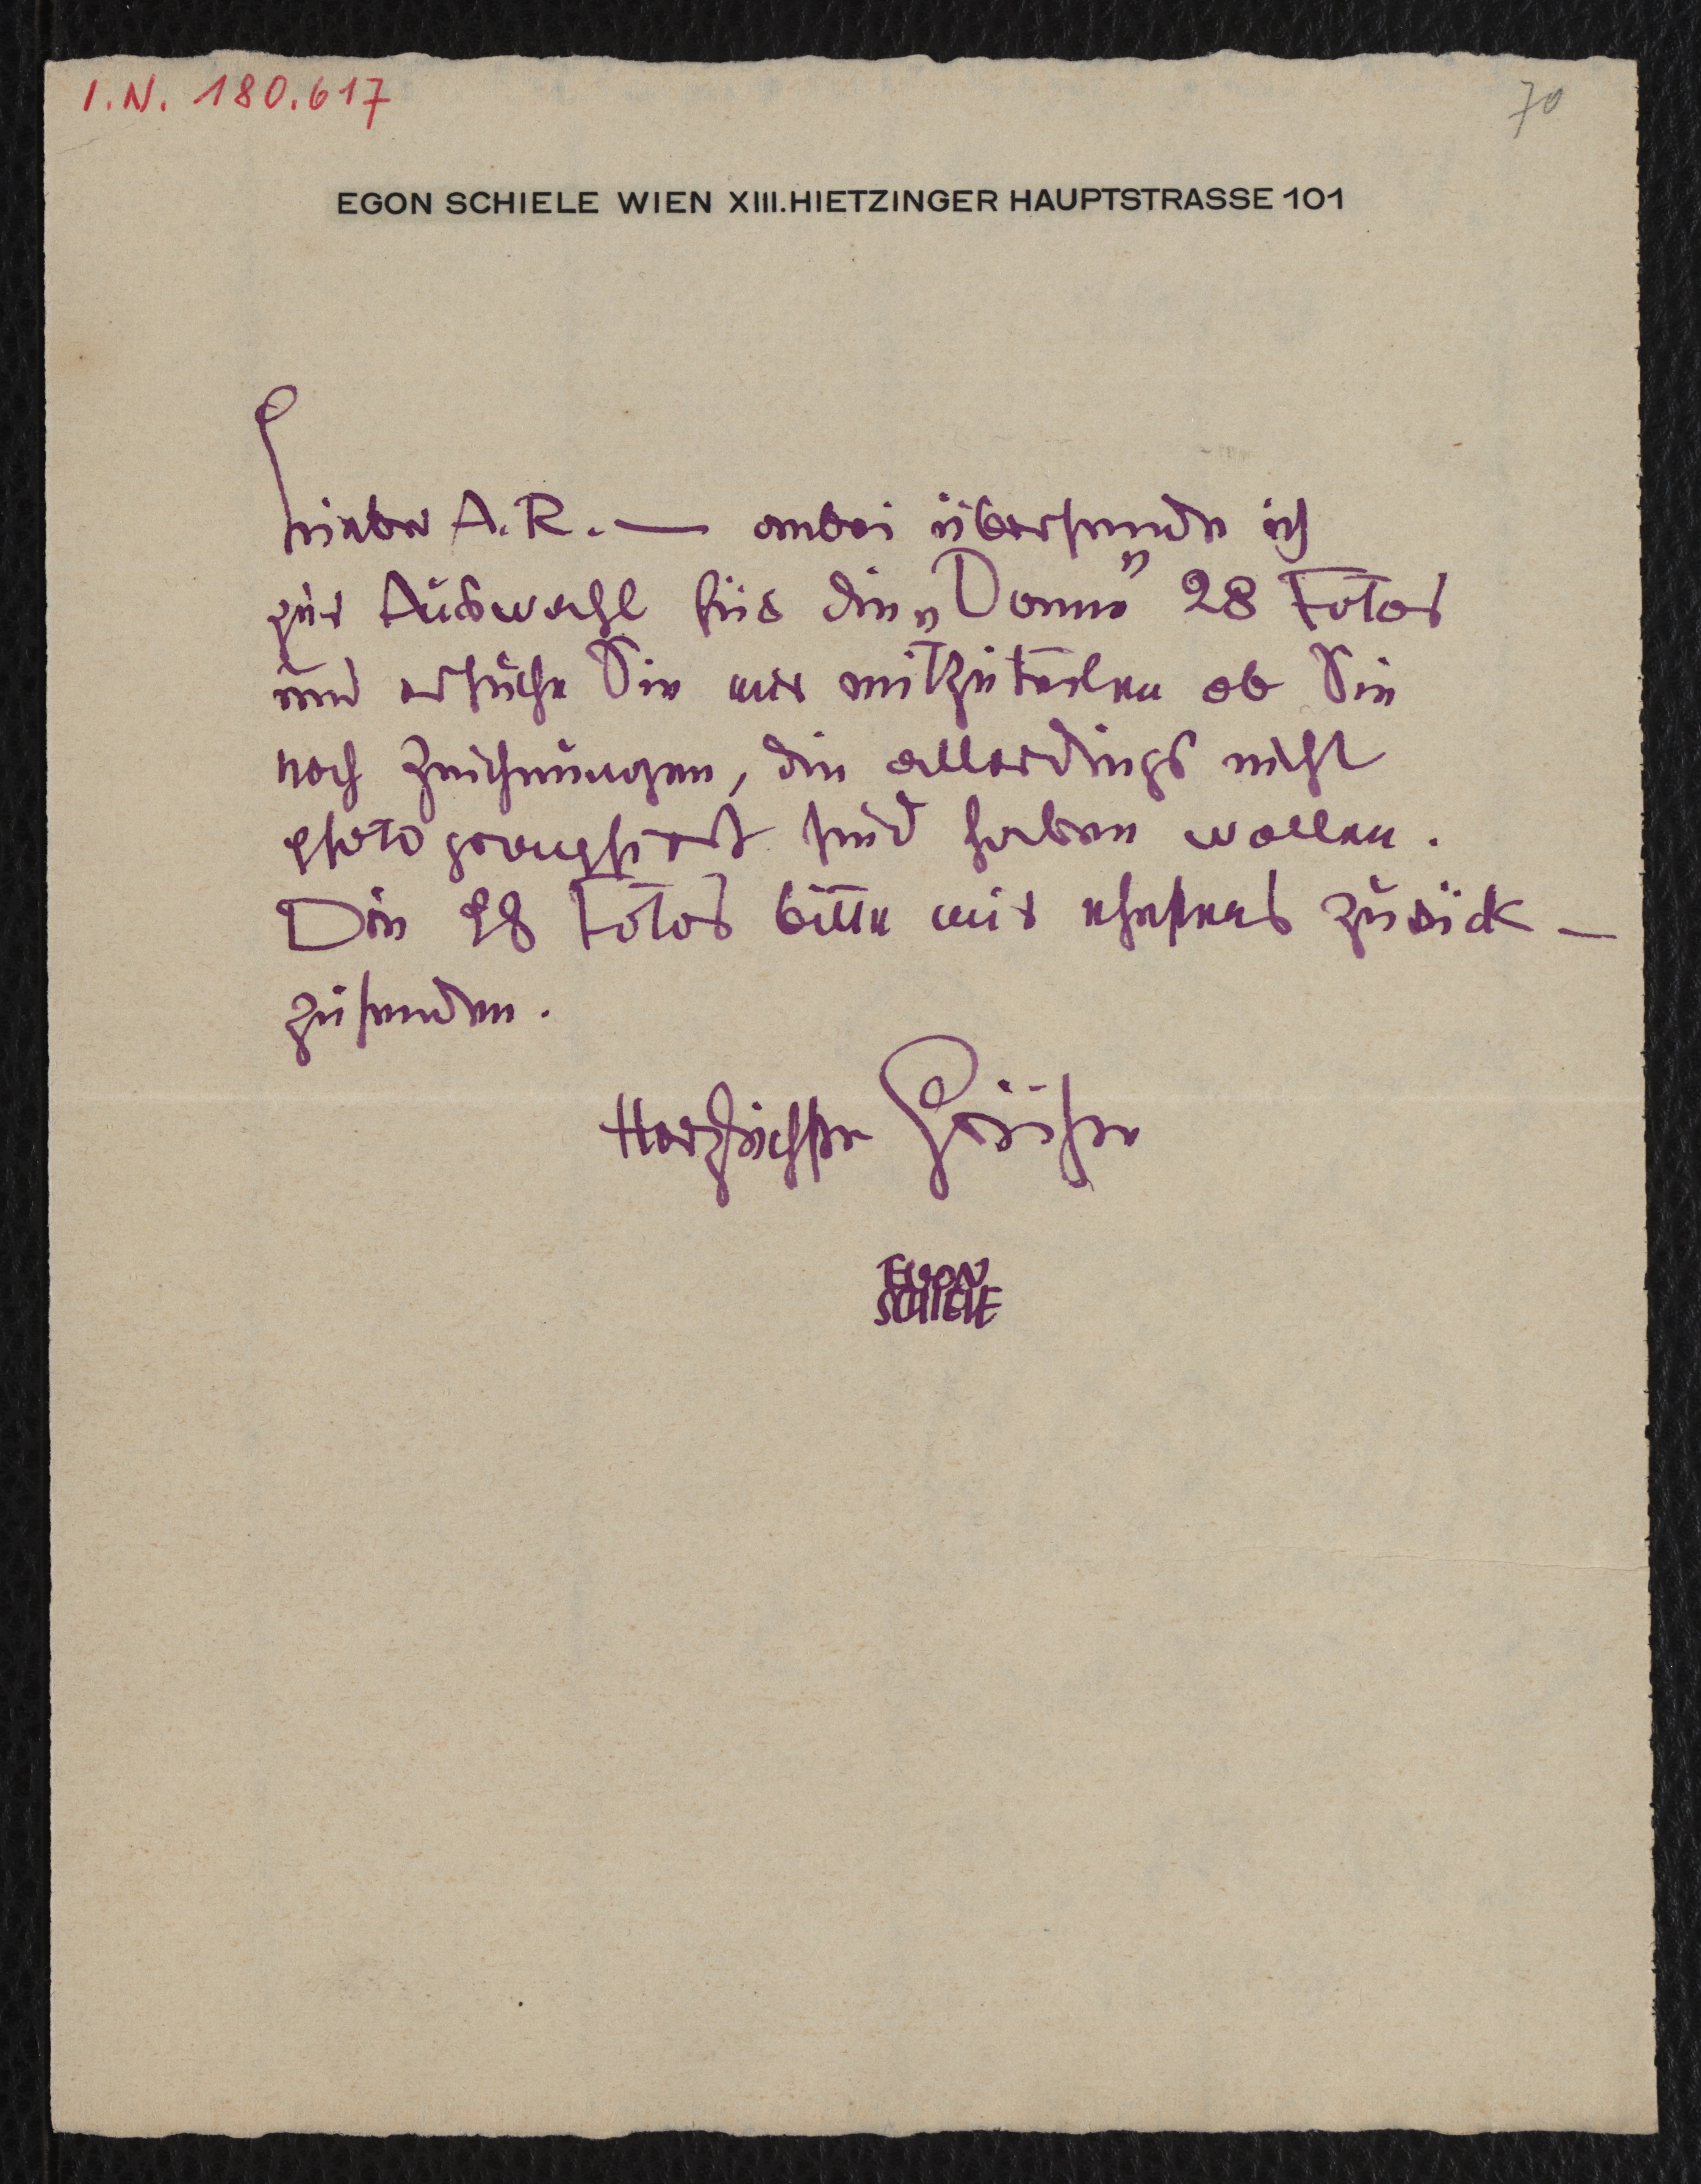 I.N. 180.617
70
EGON SCHIELE WIEN XIII. HIETZINGER HAUPTSTRASSE 101
Lieber A.R. — anbei übersende ich
zur Auswahl für die „Donau" 28 Fotos
und ersuche Sie mir mitzuteilen ob Sie
noch Zeichnungen, die allerdings nicht
photographiert sind haben wollen.
Die 28 Fotos bitte mir ehestens zurück-
zusenden.
Herzlichste Grüsse
EGON
SCHIELE